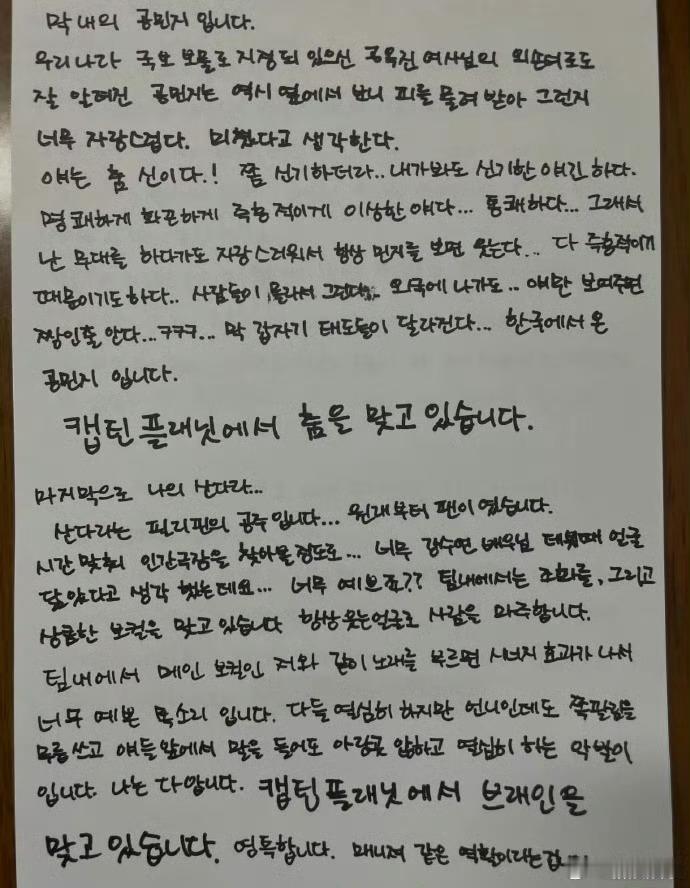 막내의 공민지 입니다.
우리나라 국보 보물로 지정되 있으신 공옥진 여사님의 외손녀로도
잘 알려진 공민지는 역시 옆에서 보니 피를 물려 받아 그런지
너무 자랑스럽다. 미쳤다고 생각한다.
얘는 춤 신이다.! 쫌 신기하더라.. 내가봐도 신기한 얘긴 하다.
명쾌하게 화끈하게 즉흥적이게 이상한 얘다... 통쾌하다... 그래서
난 무대를 하다가도 자랑스러워서 항상 민지를 보면 웃는다... 다 즉흥적이기
때문이기도 하다.. 사람들이 몰라서 그런다.. 외국에 나가도.. 얘만 보여주면
짱인줄 안다...ㅋㅋㅋ... 막 갑자기 태도들이 달라진다... 한국에서 온
공민지 입니다.
캡틴 플래닛에서 춤을 맞고 있습니다.
마지막으로 나의 산다라...
산다라는 필리핀의 공주입니다... 원래부터 팬이였습니다.
시간 맞춰 인간극장을 찾아볼 정도로... 너무 강수연 배우님 데뷔때 얼굴
닮았다고 생각 했는데요... 너무 예쁘죠?? 팀내에서는 조화를, 그리고
상큼한 보컬을 맞고 있습니다 항상 웃는얼굴로 사람을 마주합니다.
팀내에서 메인 보컬인 저와 같이 노래를 부르면 시너지 효과가 나서
너무 예쁜 목소리 입니다. 다들 열심히 하지만 언니인데도 쪽팔림을
무릅쓰고 얘들앞에서 말을 들어도 아랑곳 않하고 열심히 하는 악발이
입니다. 나는 다 압니다. 캡틴플래닛에서 브레인을
맞고 있습니다. 영특합니다. 매니져 같은 역할이라는겁...